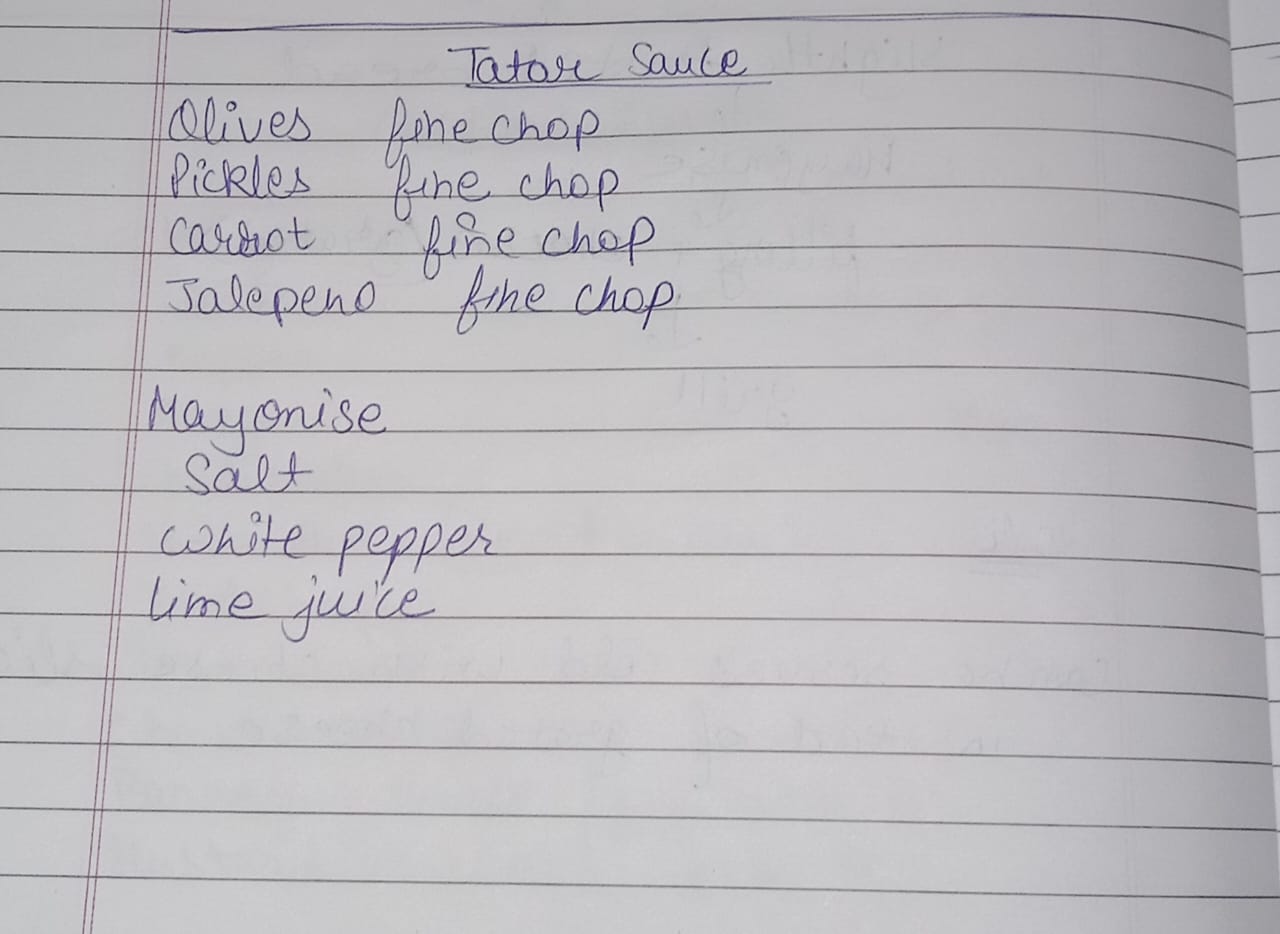 Tator Sauce
Olives fine chop
Pickles fine chop
Carrot fine chop
Jalepeno fine chop
Mayonise
Salt
white pepper
lime juice